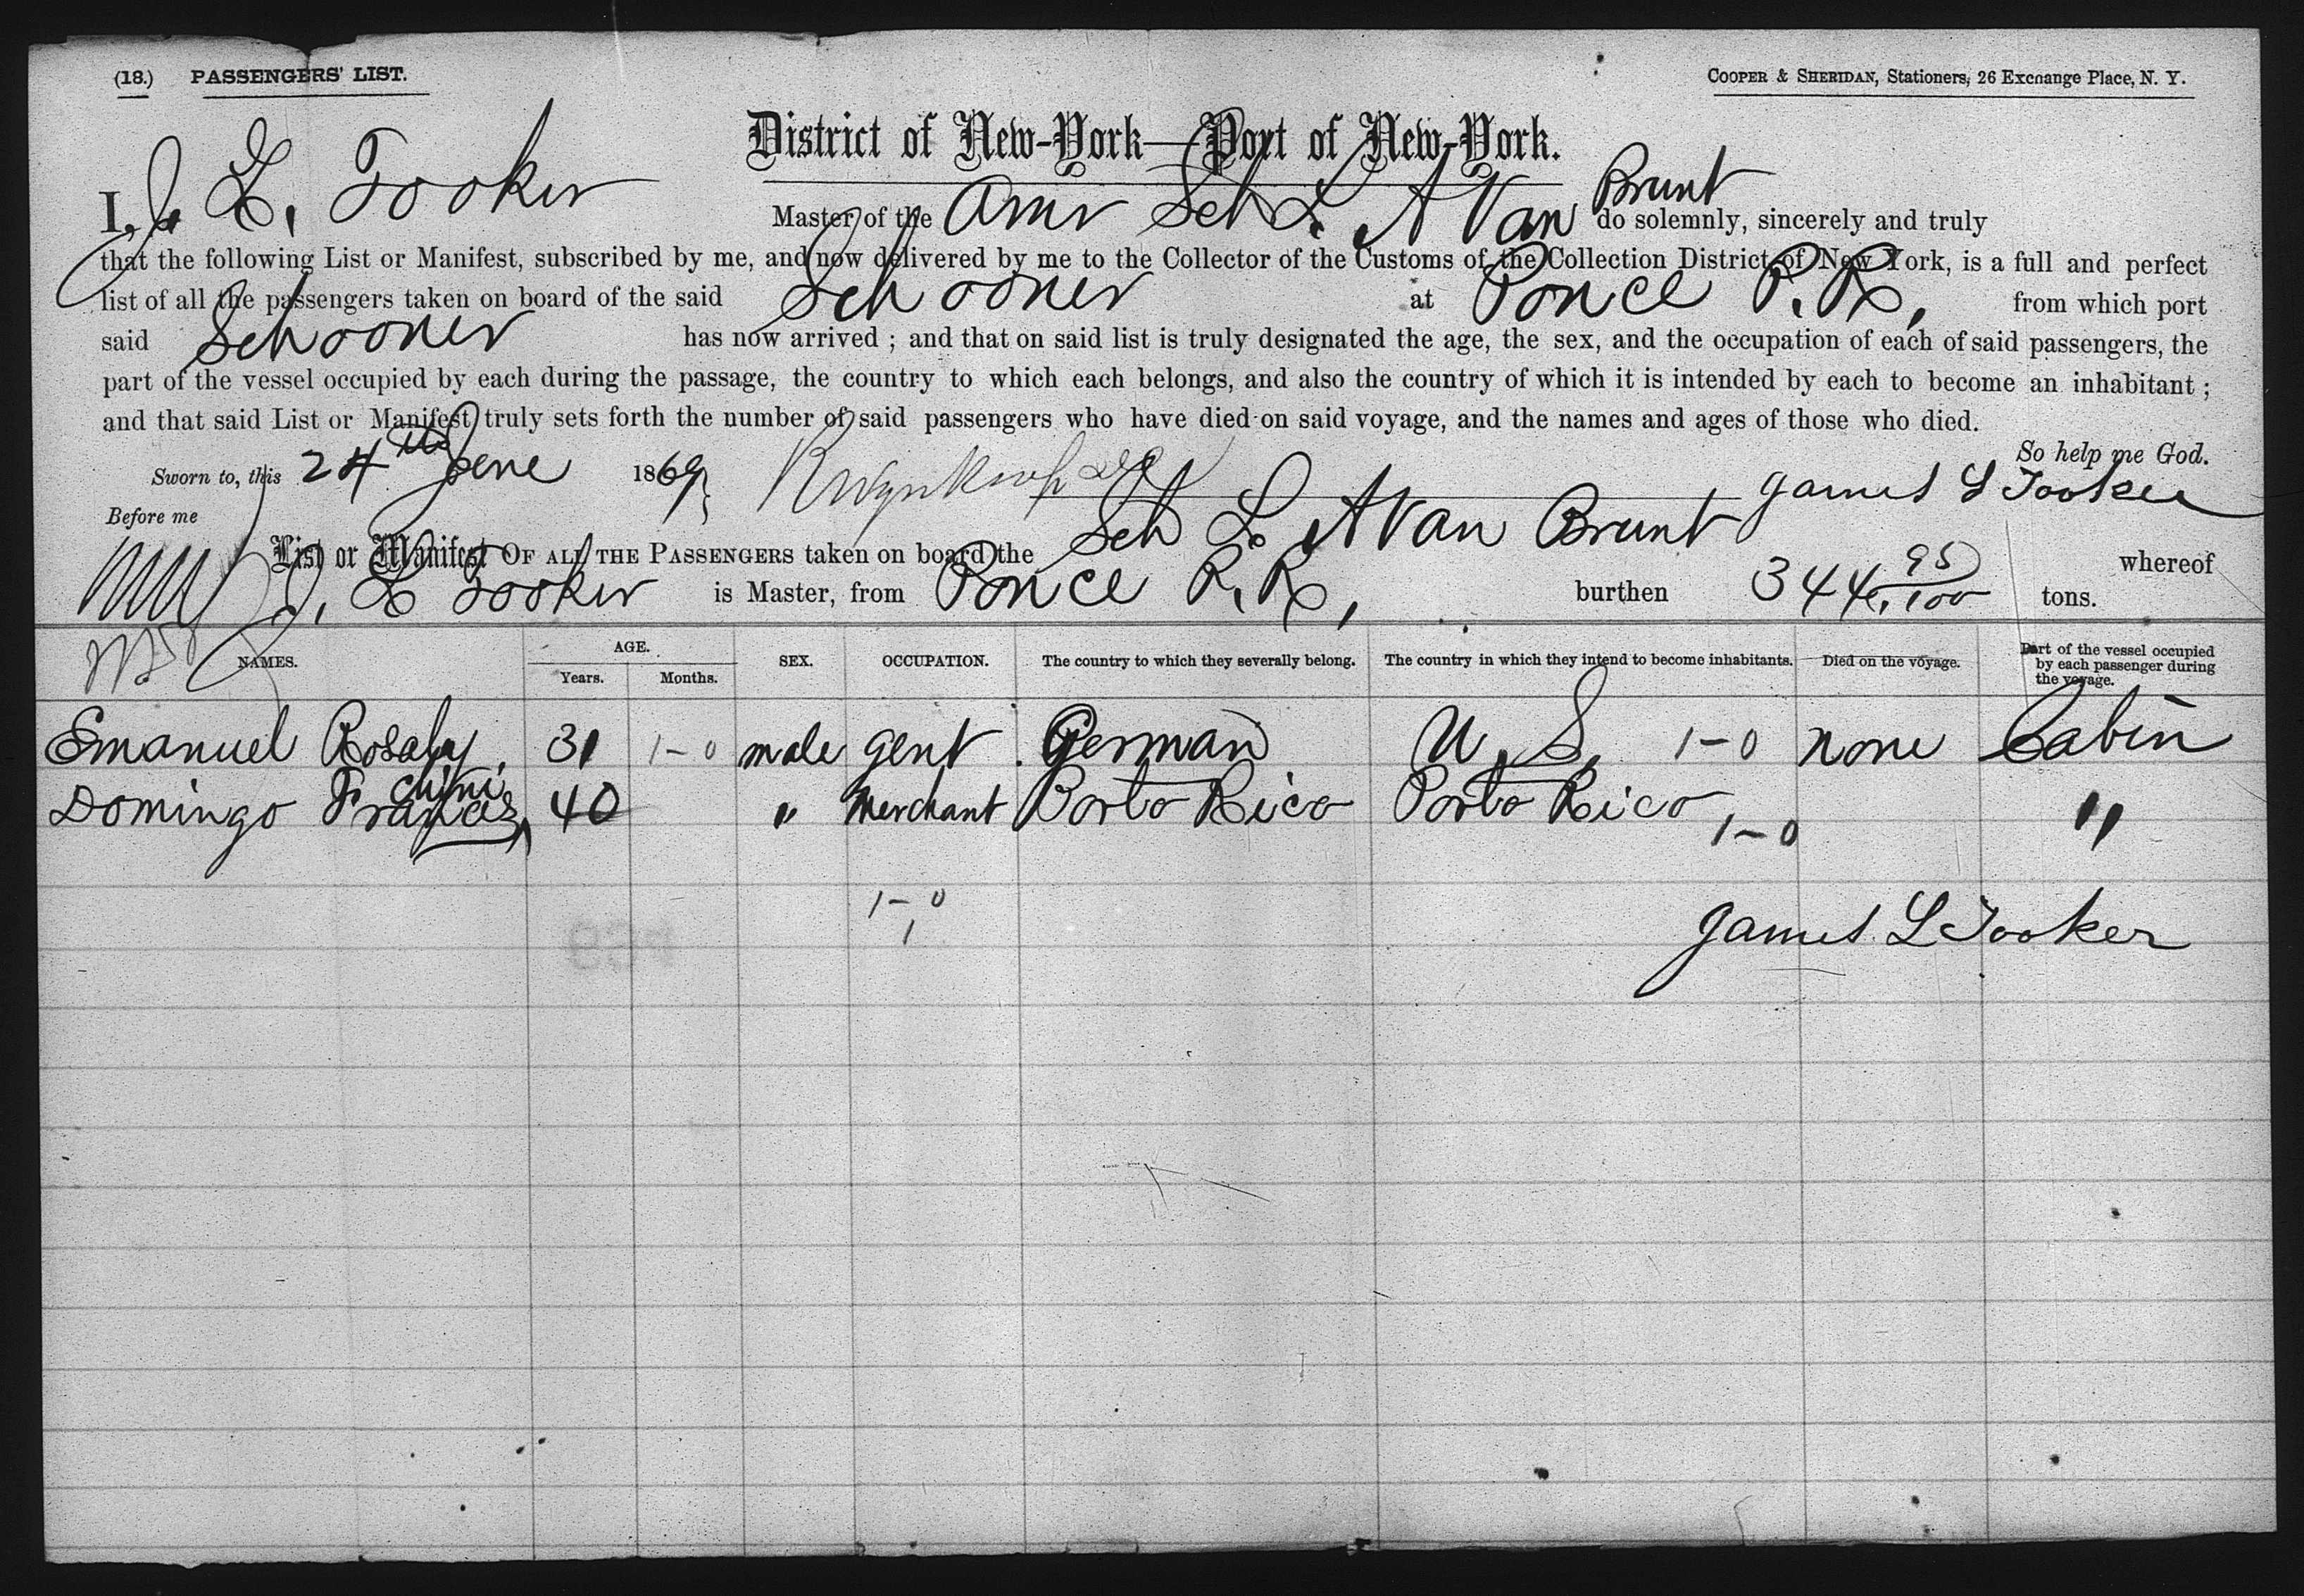 (18.) PASSENGERS' LIST.
COOPER & SHERIDAN, Stationers, 26 Exchange Place, N. Y.
District of New-York—Port of New-York.
I, J. L. Tooker Master of the Amr Sch L. A Van Brunt do solemnly, sincerely and truly
that the following List or Manifest, subscribed by me, and now delivered by me to the Collector of the Customs of the Collection District of New York, is a full and perfect
list of all the passengers taken on board of the said Schooner at Ponce P. R, from which port
said Schooner has now arrived ; and that on said list is truly designated the age, the sex, and the occupation of each of said passengers, the
part of the vessel occupied by each during the passage, the country to which each belongs, and also the country of which it is intended by each to become an inhabitant ;
and that said List or Manifest truly sets forth the number of said passengers who have died on said voyage, and the names and ages of those who died.
So help me God.
Sworn to, this 24th June 1869
James L Tooker
Before me
List or Manifest OF ALL THE PASSENGERS taken on board the Sch L. A Van Brunt whereof
J. L Tooker is Master, from Ponce P. R, burthen 344 95/100 tons.
NAMES. AGE. Years. Months. SEX. OCCUPATION. The country to which they severally belong. The country in which they intend to become inhabitants. Died on the voyage. Part of the vessel occupied by each passenger during the voyage.
Emanuel Rosaly, 31 1-0 male gent. German U. S, 1-0 none Cabin
Domingo 40 " Merchant Porto Rico Porto Rico 1-0 "
1-0
1
James L Tooker